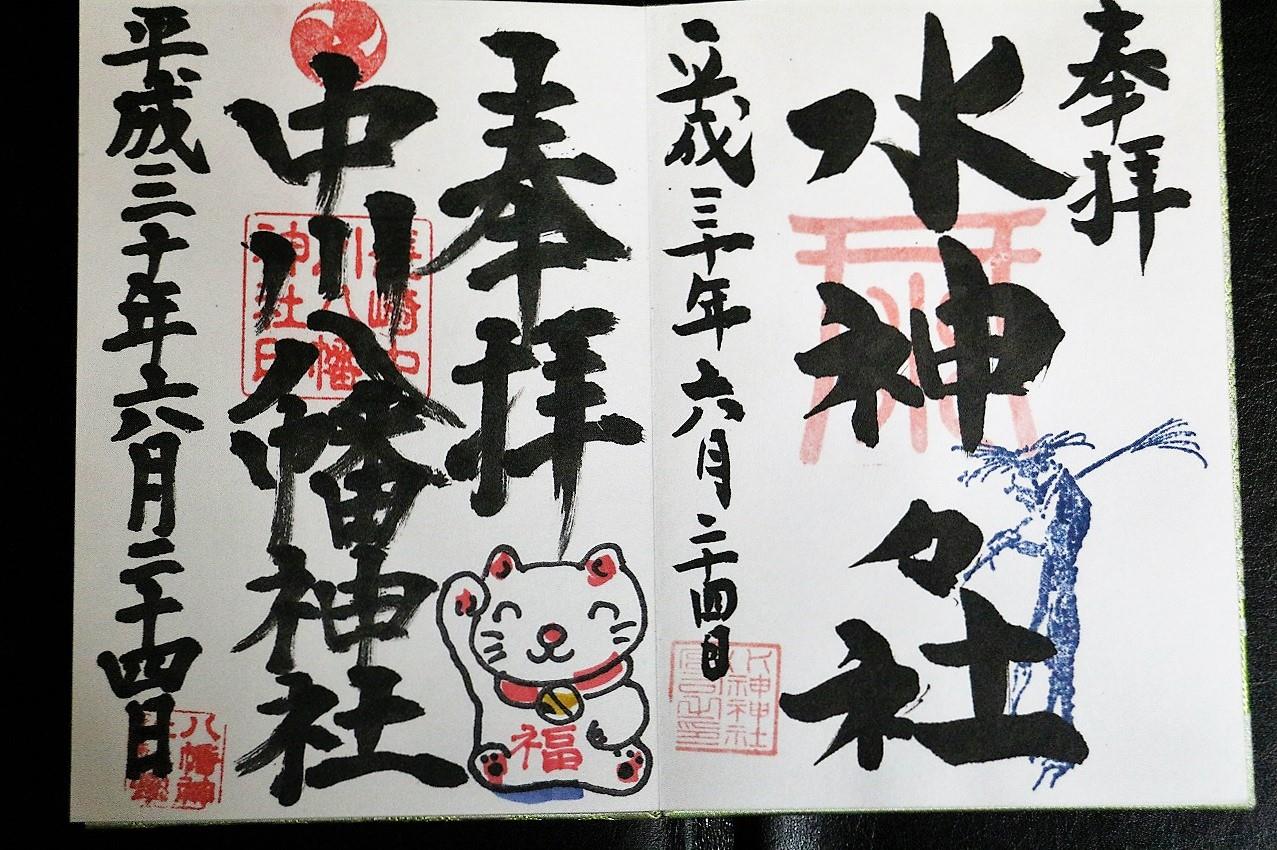 奉拝
水神々社
平成三十年六月二十四日
水神神社
奉拝
中川八幡神社
長崎中川八幡神社印
福
平成三十年六月二十四日
八幡神社